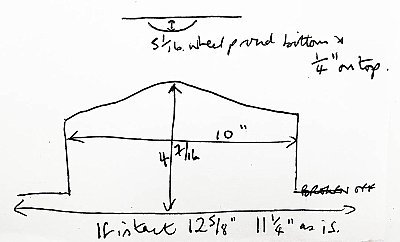 5 1/16. wheel pivoted bottom &
1/4" on top.
10"
4 7/16
BROKEN OFF
If intact 12 5/8" 11 1/4" as is.